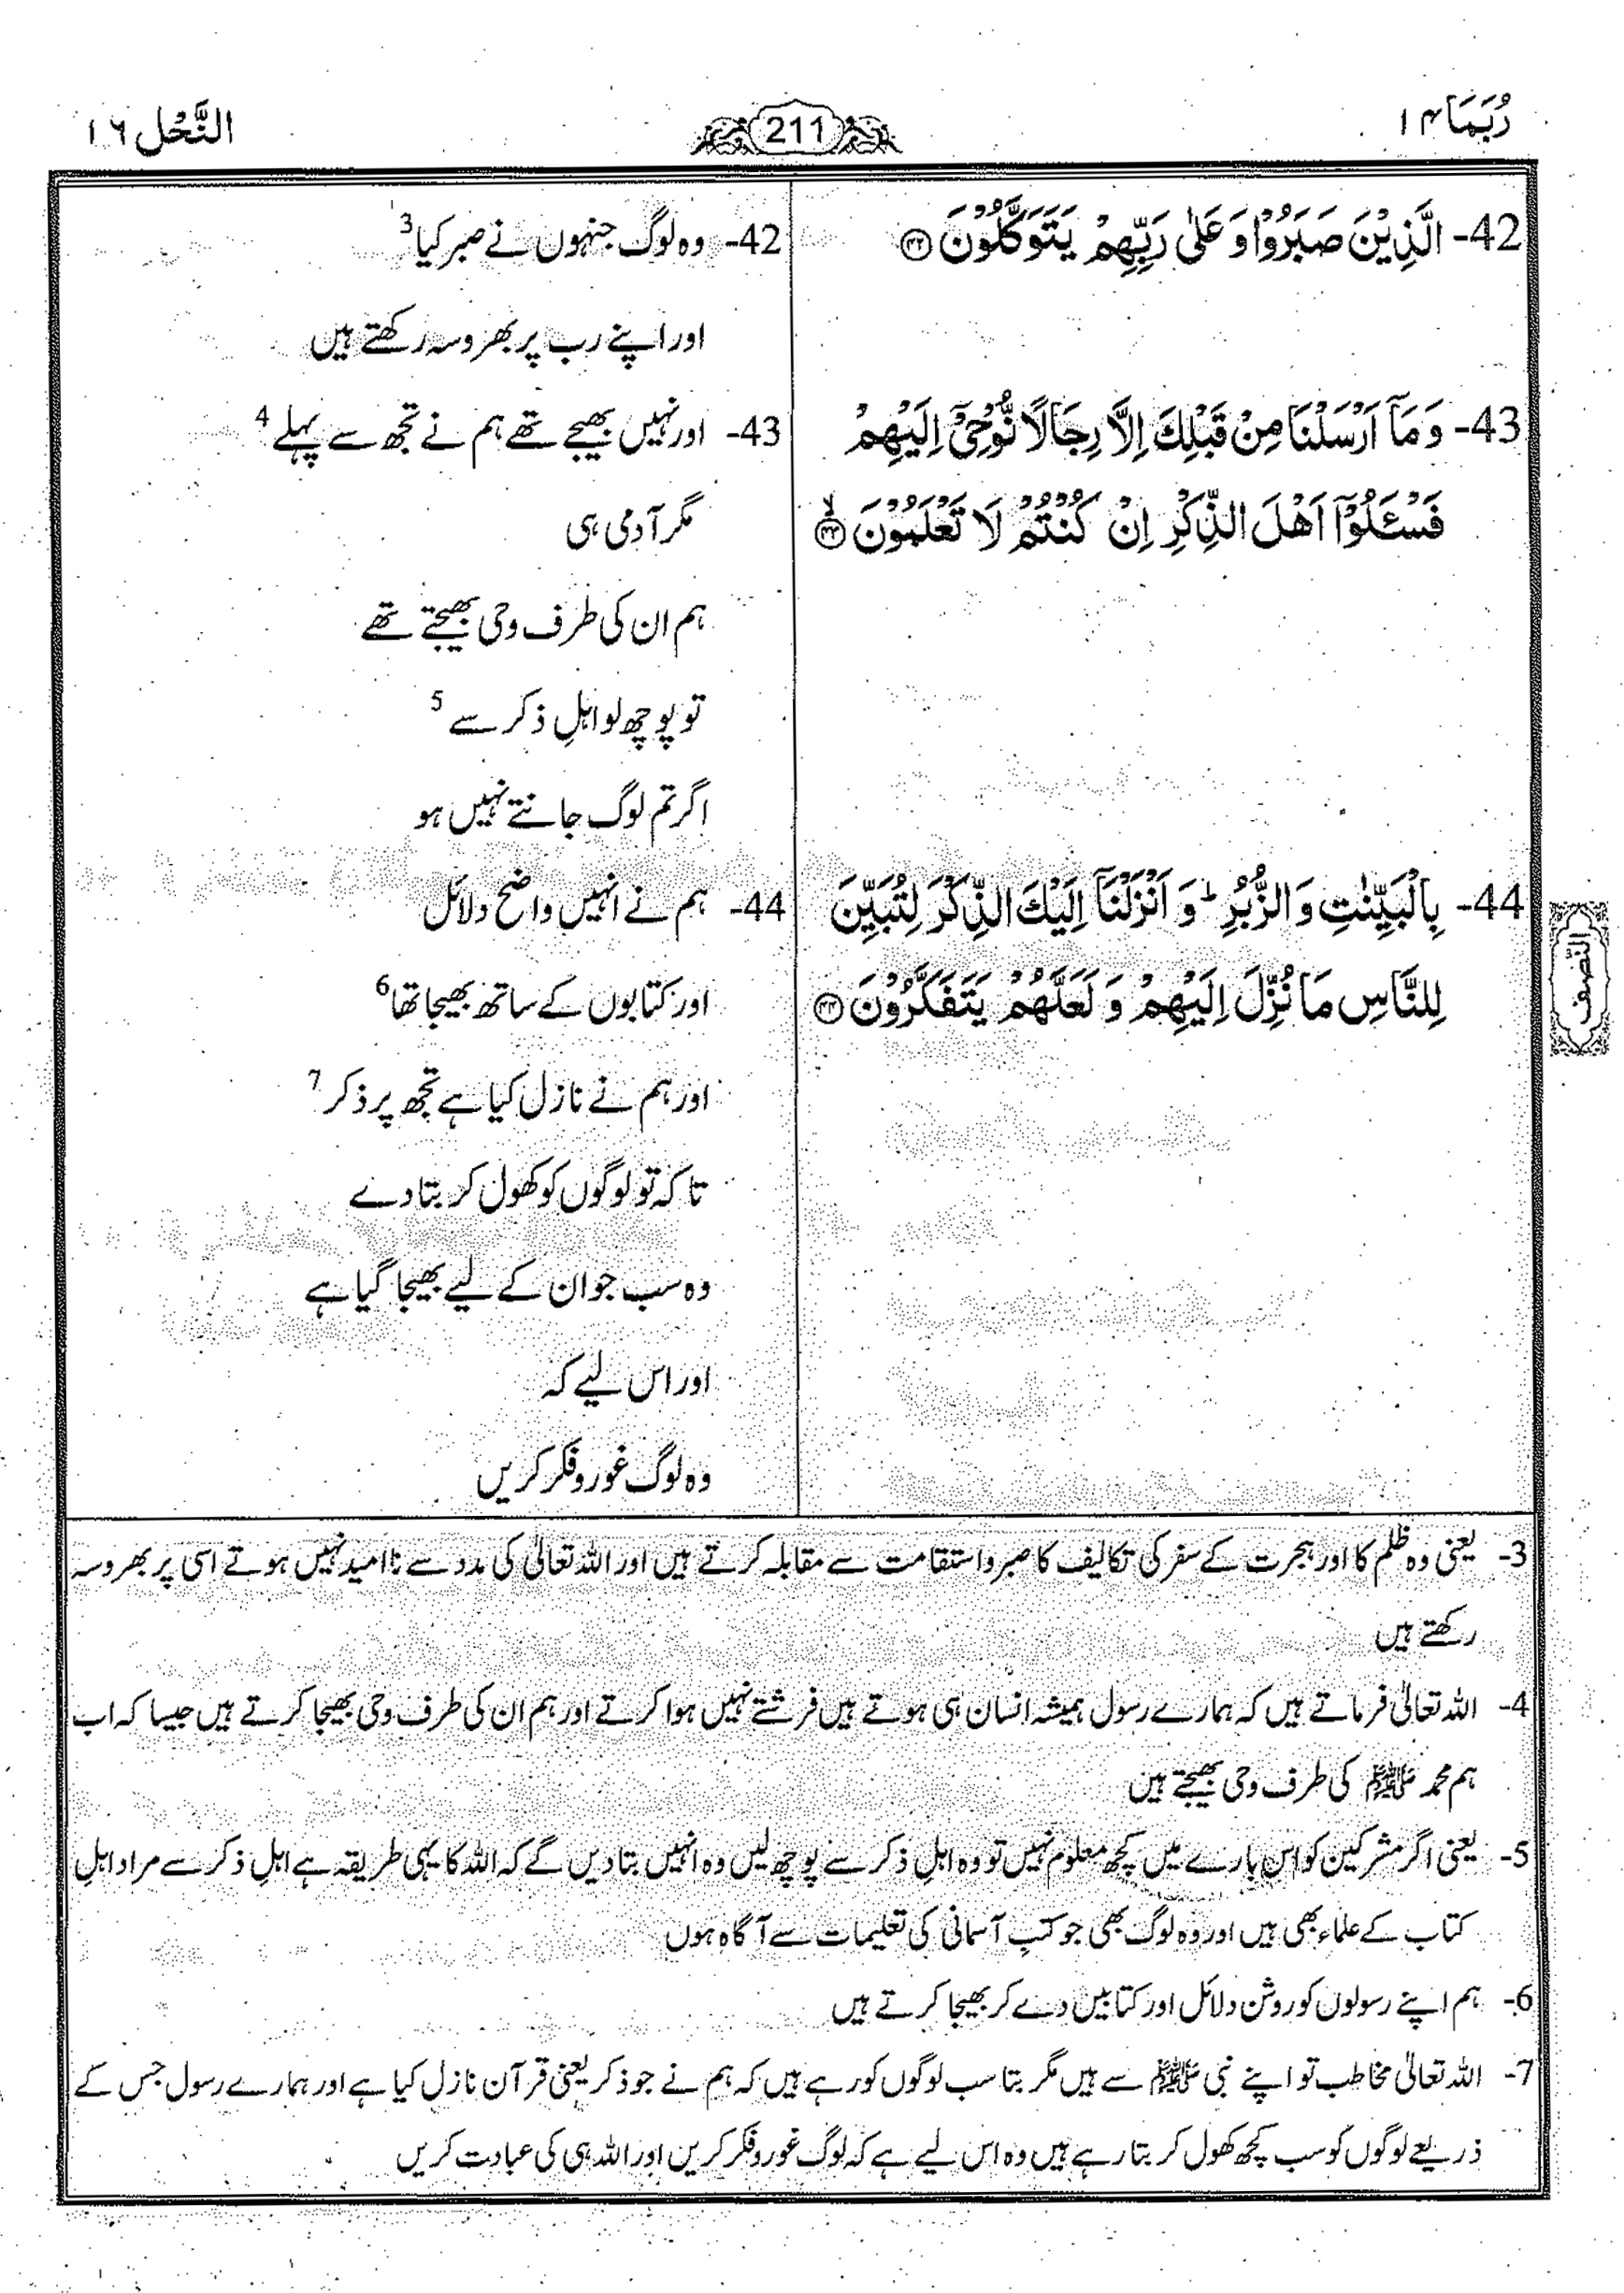 رُبَمَا ۱۴
211
النَّحْل ۱۶
42- الَّذِيْنَ صَبَرُوْا وَعَلٰى رَبِّهِمْ يَتَوَكَّلُوْنَ ﴿۴۲﴾
43- وَمَآ اَرْسَلْنَا مِنْ قَبْلِكَ اِلَّا رِجَالًا نُّوْحِيْٓ اِلَيْهِمْ
فَسْـَٔلُوْٓا اَهْلَ الذِّكْرِ اِنْ كُنْتُمْ لَا تَعْلَمُوْنَ ﴿۴۳﴾ۙ
44- بِالْبَيِّنٰتِ وَالزُّبُرِ ؕ وَاَنْزَلْنَآ اِلَيْكَ الذِّكْرَ لِتُبَيِّنَ
لِلنَّاسِ مَا نُزِّلَ اِلَيْهِمْ وَلَعَلَّهُمْ يَتَفَكَّرُوْنَ ﴿۴۴﴾
النصف
42- وہ لوگ جنہوں نے صبر کیا 3
اور اپنے رب پر بھروسہ رکھتے ہیں
43- اور نہیں بھیجے تھے ہم نے تجھ سے پہلے 4
مگر آدمی ہی
ہم ان کی طرف وحی بھیجتے تھے
تو پوچھ لو اہلِ ذکر سے 5
اگر تم لوگ جانتے نہیں ہو
44- ہم نے انہیں واضح دلائل
اور کتابوں کے ساتھ بھیجا تھا 6
اور ہم نے نازل کیا ہے تجھ پر ذکر 7
تاکہ تو لوگوں کو کھول کر بتا دے
وہ سب جو ان کے لیے بھیجا گیا ہے
اور اس لیے کہ
وہ لوگ غور و فکر کریں
3- یعنی وہ ظلم کا اور ہجرت کے سفر کی تکالیف کا صبر و استقامت سے مقابلہ کرتے ہیں اور اللہ تعالیٰ کی مدد سے ناامید نہیں ہوتے اسی پر بھروسہ
رکھتے ہیں
4- اللہ تعالیٰ فرماتے ہیں کہ ہمارے رسول ہمیشہ انسان ہی ہوتے ہیں فرشتے نہیں ہوا کرتے اور ہم ان کی طرف وحی بھیجا کرتے ہیں جیسا کہ اب
ہم محمد ﷺ کی طرف وحی بھیجتے ہیں
5- یعنی اگر مشرکین کو اس بارے میں کچھ معلوم نہیں تو وہ اہلِ ذکر سے پوچھ لیں وہ انہیں بتا دیں گے کہ اللہ کا یہی طریقہ ہے اہلِ ذکر سے مراد اہلِ
کتاب کے علماء بھی ہیں اور وہ لوگ بھی جو کتبِ آسمانی کی تعلیمات سے آگاہ ہوں
6- ہم اپنے رسولوں کو روشن دلائل اور کتابیں دے کر بھیجا کرتے ہیں
7- اللہ تعالیٰ مخاطب تو اپنے نبی ﷺ سے ہیں مگر بتا سب لوگوں کو رہے ہیں کہ ہم نے جو ذکر یعنی قرآن نازل کیا ہے اور ہمارے رسول جس کے
ذریعے لوگوں کو سب کچھ کھول کر بتا رہے ہیں وہ اس لیے ہے کہ لوگ غور و فکر کریں اور اللہ ہی کی عبادت کریں